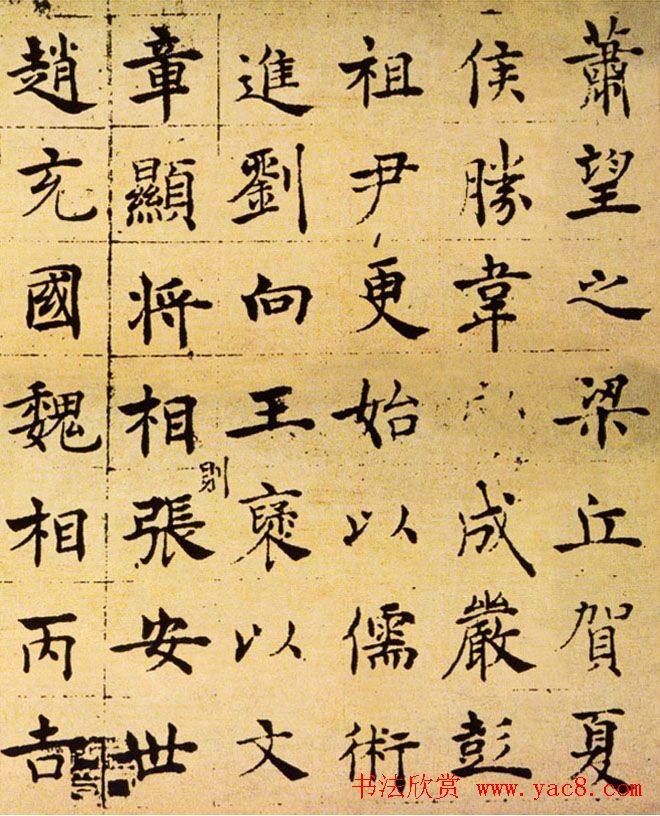 蕭望之梁丘賀夏
侯勝韋成嚴彭
祖尹更始以儒術
進劉向王褒以文
章顯将相張安世
則
趙充國魏相丙吉
书法欣赏 www.yac8.com